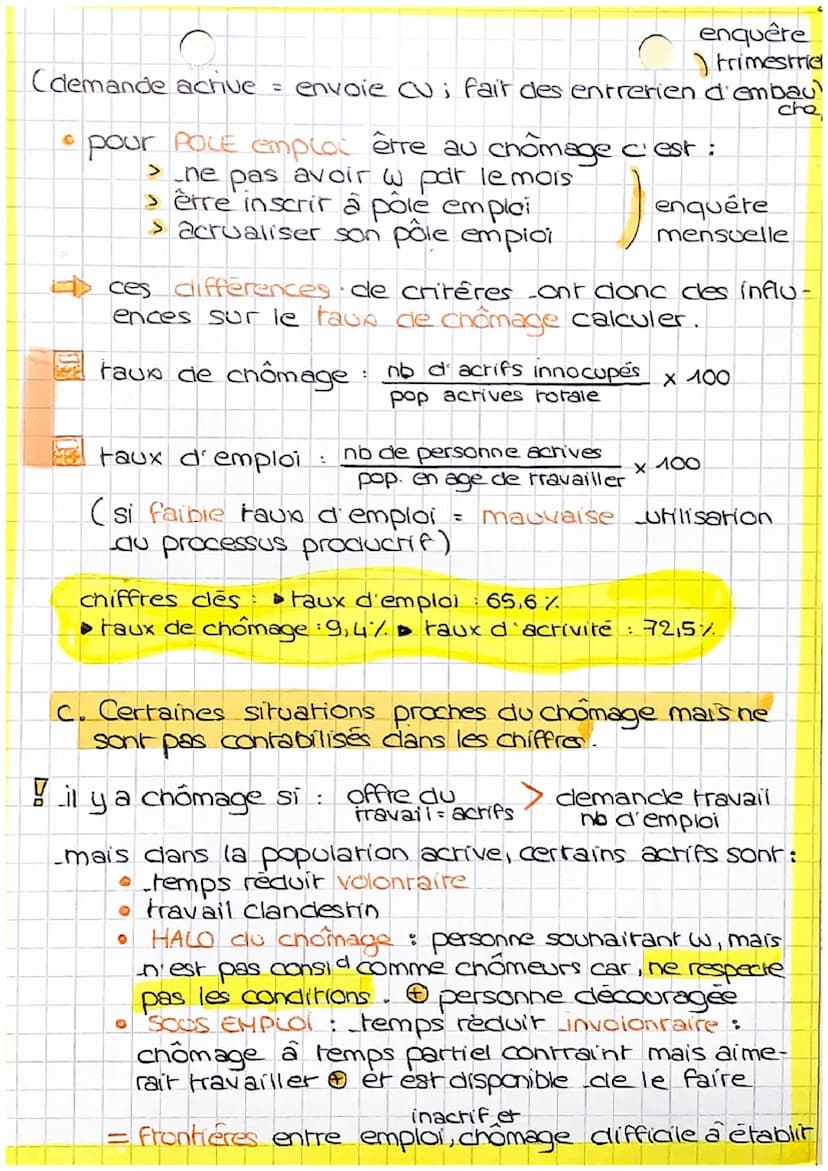 enquête
) trimestriel
(demande active = envoie CV ; fait des entretien d'embau
che)
• pour POLE emploi être au chômage c'est :
> ne pas avoir w pdt le mois
> être inscrit à pôle emploi
> actualiser son pôle emploi
) enquête
mensuelle
⇨ ces différences de critères ont donc des influ-
ences sur le taux de chômage calculer.
taux de chômage : nb d'actifs innocupés x 100
pop actives totale
taux d'emploi : nb de personne actives x 100
pop. en age de travailler
(si faible taux d'emploi = mauvaise utilisation
du processus productif)
chiffres clés : ▶ taux d'emploi : 65,6 %
▶ taux de chômage : 9,4% ▶ taux d'activité : 72,5%
C. Certaines situations proches du chômage mais ne
sont pas contabilisés dans les chiffres.
! il y a chômage si : offre du > demande travail
travail = actifs nb d'emploi
mais dans la population active, certains actifs sont :
• temps réduit volontaire
• travail clandestin
• HALO du chômage : personne souhaitant w, mais
n'est pas consid comme chômeurs car, ne respecte
pas les conditions. ⊕ personne découragée
• SOUS EMPLOI : temps réduit involontaire :
chômage à temps partiel contraint mais aime-
rait travailler ⊕ et est disponible de le faire
inactif et
= frontières entre emploi, chômage difficile à établir